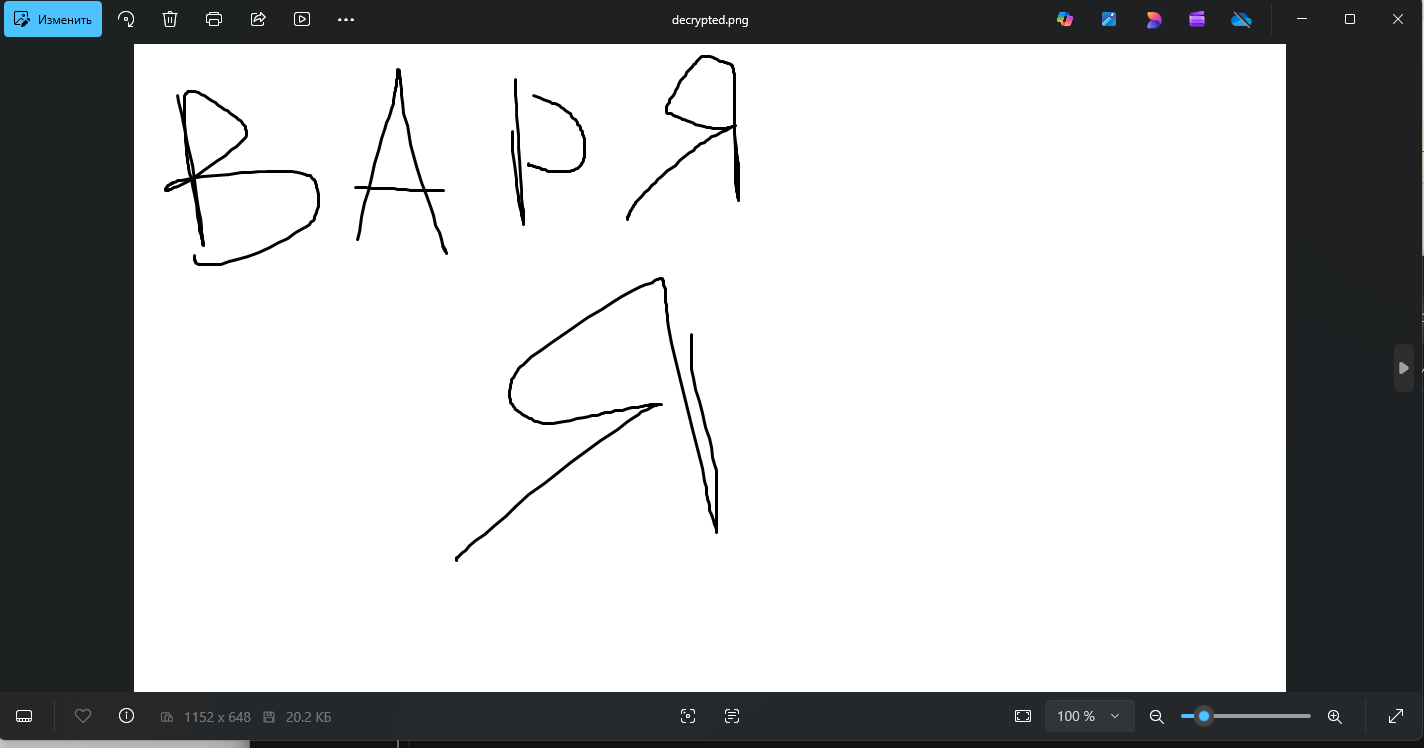 Изменить
decrypted.png
ВАРЯ
Я
1152 x 648
20.2 КБ
100 %